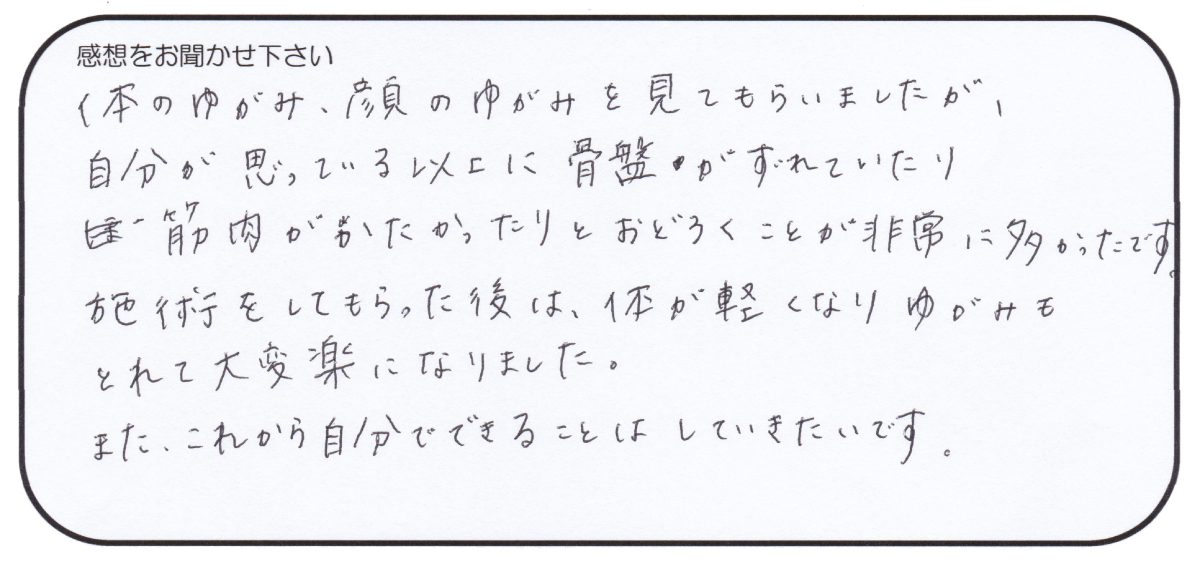 感想をお聞かせ下さい
体のゆがみ、顔のゆがみを見てもらいましたが、
自分が思っている以上に骨盤がずれていたり
筋肉がかたかったりとおどろくことが非常に多かったです。
施術をしてもらった後は、体が軽くなりゆがみも
とれて大変楽になりました。
また、これから自分でできることはしていきたいです。